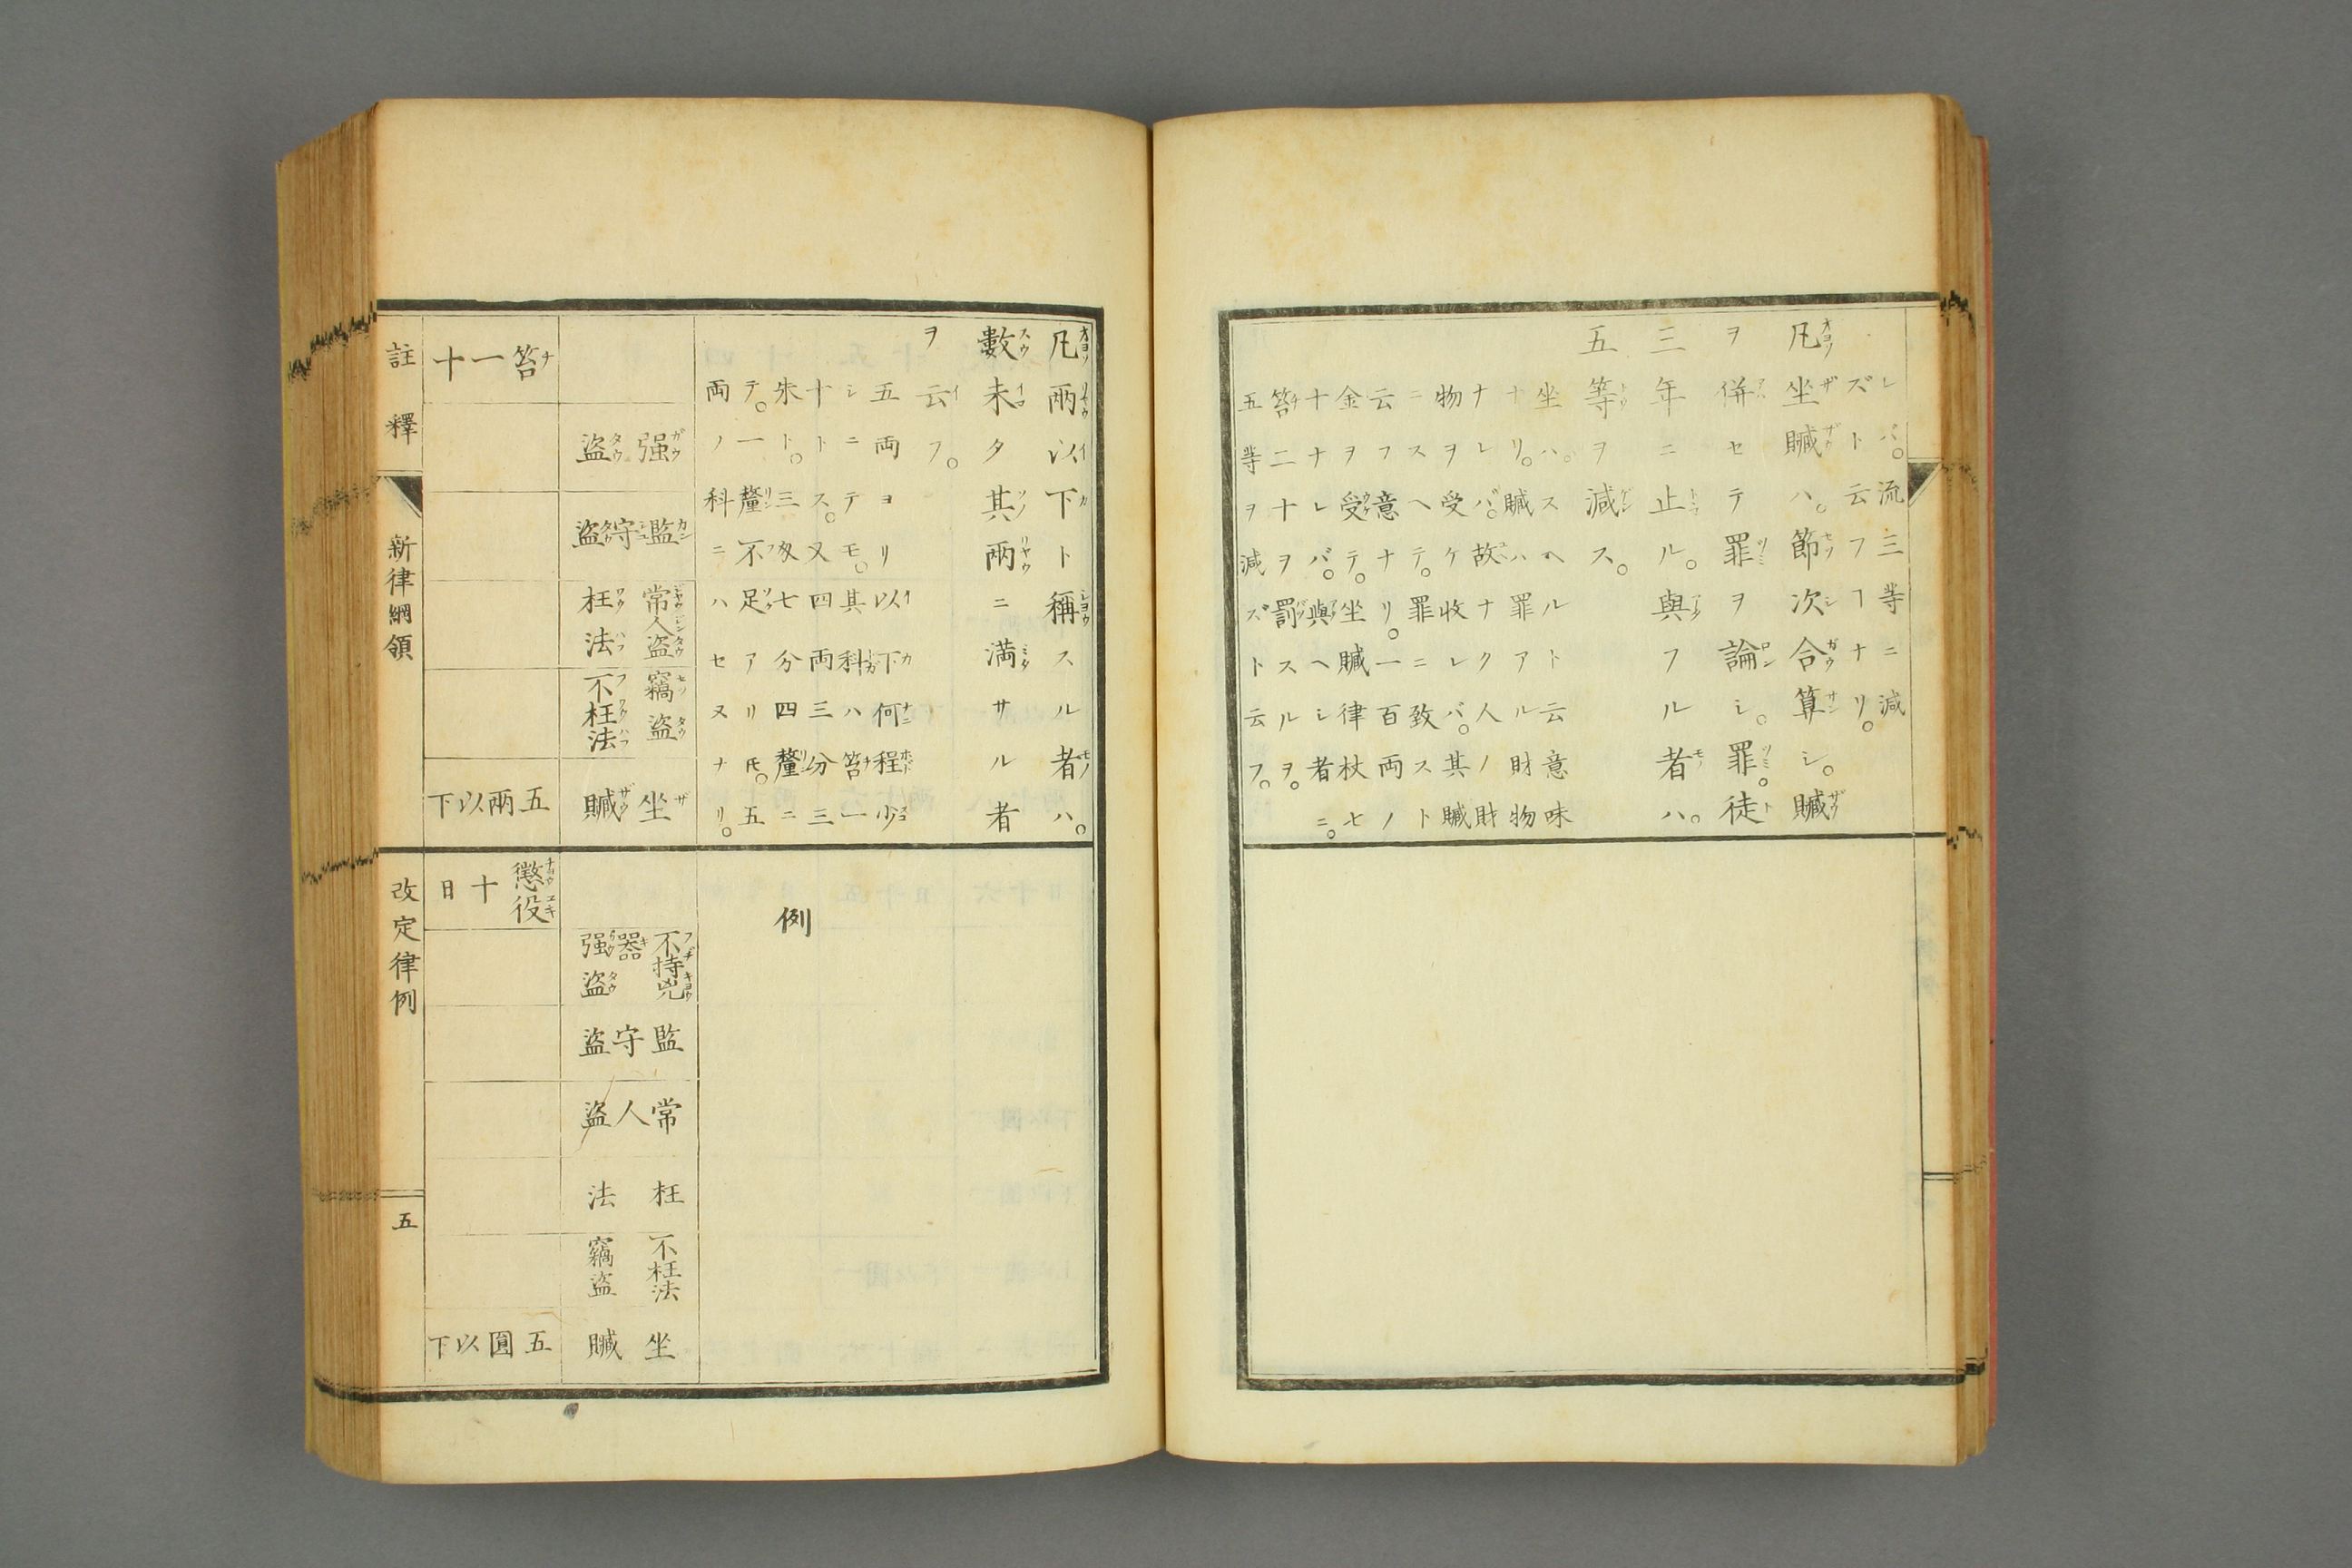 レバ。流三等ニ減
ズト云フヿナリ。
凡坐贓ハ。節次合算シ。贓
ヲ併セテ罪ヲ論シ。罪。徒
三年ニ止ル。與フル者ハ。
五等ヲ減ス。
坐ハ。スヘルト云意味
ナリ。贓ハ罪アル財物
ナレバ。故ナク人ノ財
物ヲ受ケ收レバ。其贓
ニスヘテ。罪ニ致スト
云フ意ナリ。一百両ノ
金ヲ受テ。坐贓律杖七
十ナレバ。與ヘシ者ニ。
笞二十ヲ罰スルヲ。
五等ヲ減ズト云フ。
凡兩以下ト稱スル者ハ。
數未タ其兩ニ満サル者
ヲ云フ。
五両ヨリ以下何程少
シニテモ。其科ハ笞一
十トス。又四両三分三
朱ト。三匁七分四釐ニ
テ。一釐不足アリ𪜈。五
両ノ科ニハセヌナリ。
强盗
監守盗
常人盗
枉法
竊盗
不枉法
坐贓
笞一十
五兩以下
例
不持兇
器
强盗
監守盗
常人盗
枉法
不枉法
竊盗
坐贓
懲役
十日
五圓以下
註釋
新律綱領
改定律例
五